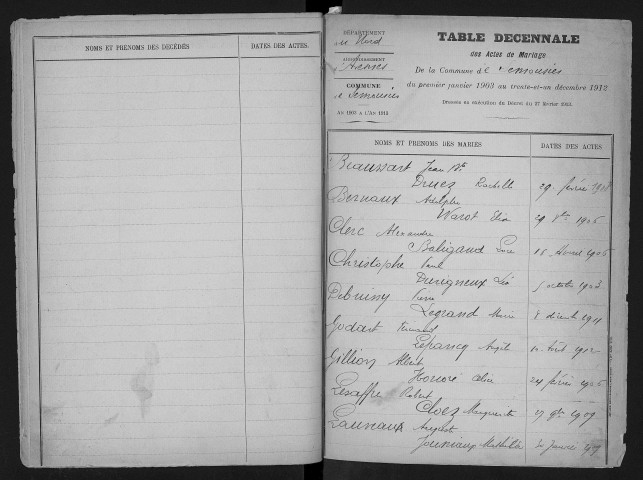 NOMS ET PRENOMS DES DÉCÉDÉS
DATES DES ACTES.
DÉPARTEMENT
du Nord
ARRONDISSEMENT
d'Avesnes
COMMUNE
de Semousies
AN 1903 A L'AN 1912
TABLE DECENNALE
des Actes de Mariage
De la Commune de Semousies
du premier janvier 1903 au trente-et-un décembre 1912
Dressée en exécution du Décret du 27 février
NOMS ET PRENOMS DES MARIÉS
DATES DES ACTES
Beaussart Jean Bte
Druez Rachelle 29 février 1908
Bernaux Adolphe
Warot Elia 29 8bre 1906
Clerc Alexandre
Baligand Luce 15 Avril 1905
Christophe Paul
Durigneux Léa 5 octobre 1903
Debruisy
Legrand Marie 8 décembre 1911
Godart Fernand
Lefrancq Angèle Août 1912
Gillion Albert
Honoré Alice 24 février 1906
Lesaffre Robert
Cloez Marguerite 27 9bre 1909
Launaux August
Joüniaux Mathilde 20 Janvier